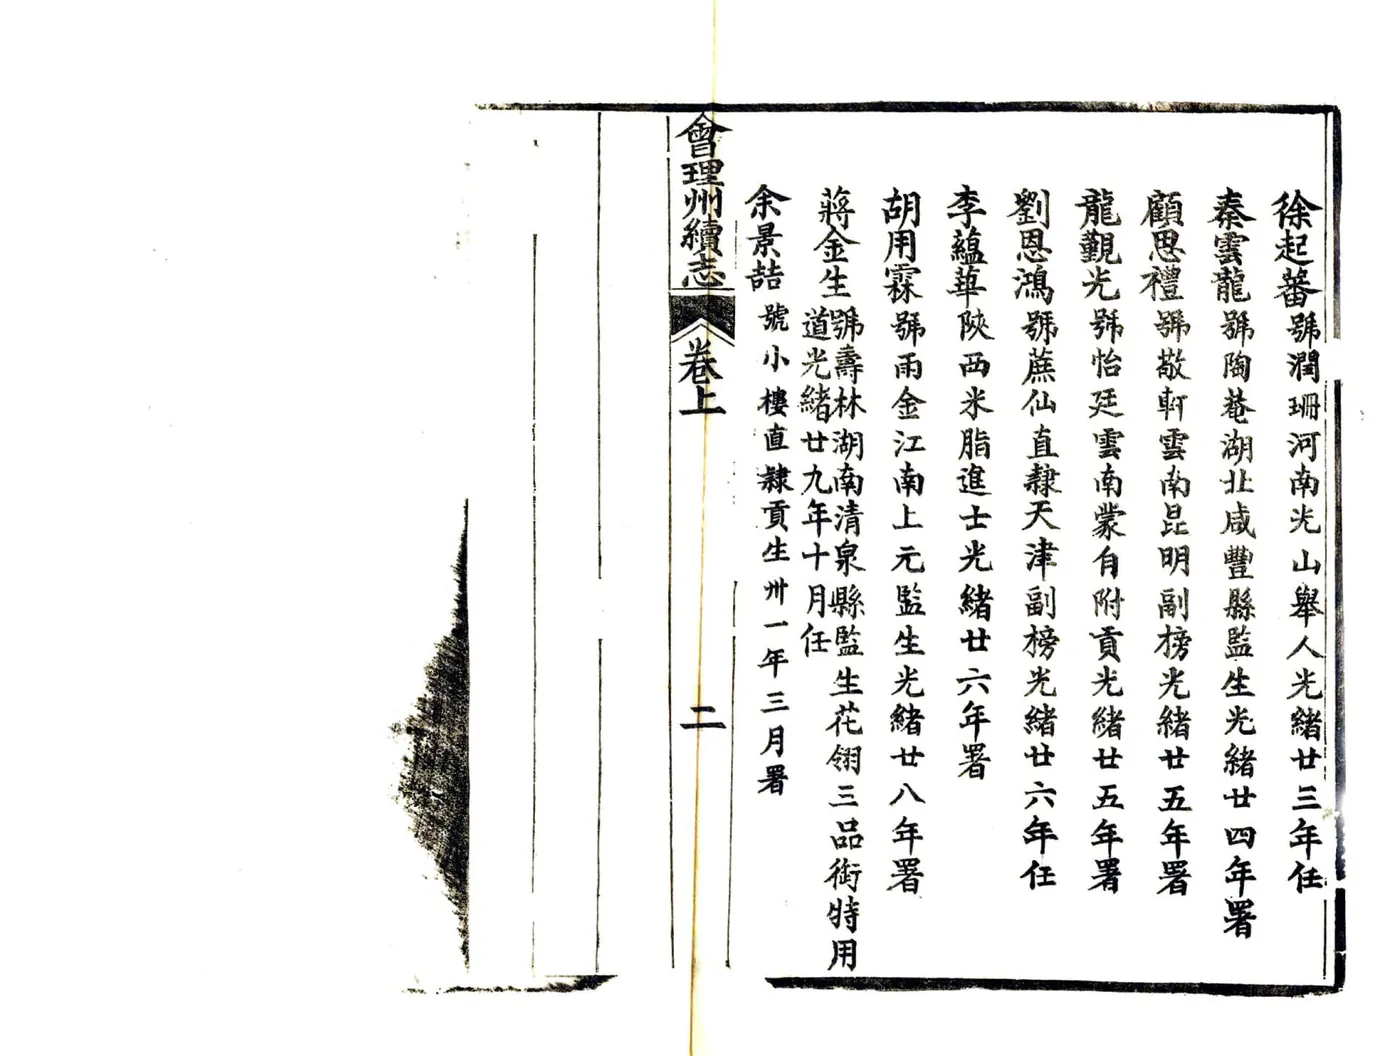 徐起蕃號潤珊河南光山舉人光緒廿三年任
秦雲龍號陶菴湖北咸豐縣監生光緒廿四年署
顧思禮號敬軒雲南昆明副榜光緒廿五年署
龍覲光號怡廷雲南蒙自附貢光緒廿五年署
劉恩鴻號蔗仙直隸天津副榜光緒廿六年任
李蘊華陝西米脂進士光緒廿六年署
胡用霖號雨金江南上元監生光緒廿八年署
蔣金生號壽林湖南清泉縣監生花翎三品銜特用
道光緒廿九年十月任
余景喆號小樓直隸貢生卅一年三月署
會理州續志 卷上 二